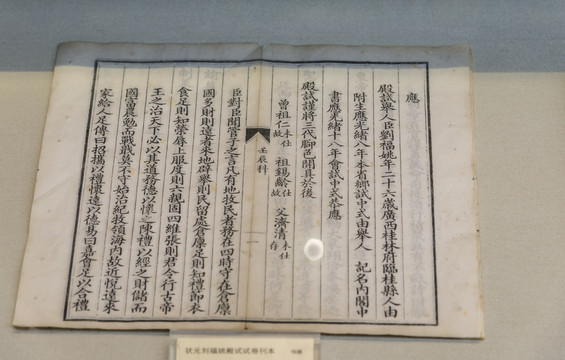 應
殿試舉人臣劉福姚年二十六歲廣西桂林府臨桂縣人由
附生應光緒八年本省鄉試中式由舉人 記名內閣中
書應光緒十八年會試中式恭應
殿試謹將三代腳色開具於後
曾祖仁未仕故 祖錫齡仕故 父濟清未仕存
壬辰科 一
臣對臣聞管子之言凡有地牧民者務在四時守在倉廩
國多財則遠者來地辟舉則民留處倉廩足則知禮節衣
食足則知榮辱上服度則六親固四維張則君令行古帝
王之治天下必以其道務德以懷之陳禮以經之財儲而
國富農勉而戰戢莫不守始治紀技領海內故近悅遠來
家給人足傳曰招攜以禮懷遠以德易曰嘉會足以合禮
状元刘福姚殿试试卷刊本